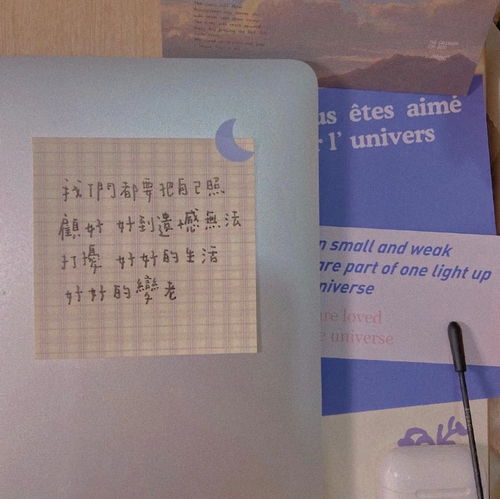 我們都要把自己照
顧好 好到遺憾無法
打擾 好好的生活
好好的變老
us êtes aimé
r l' univers
n small and weak
are part of one light up
niverse
are loved
e universe